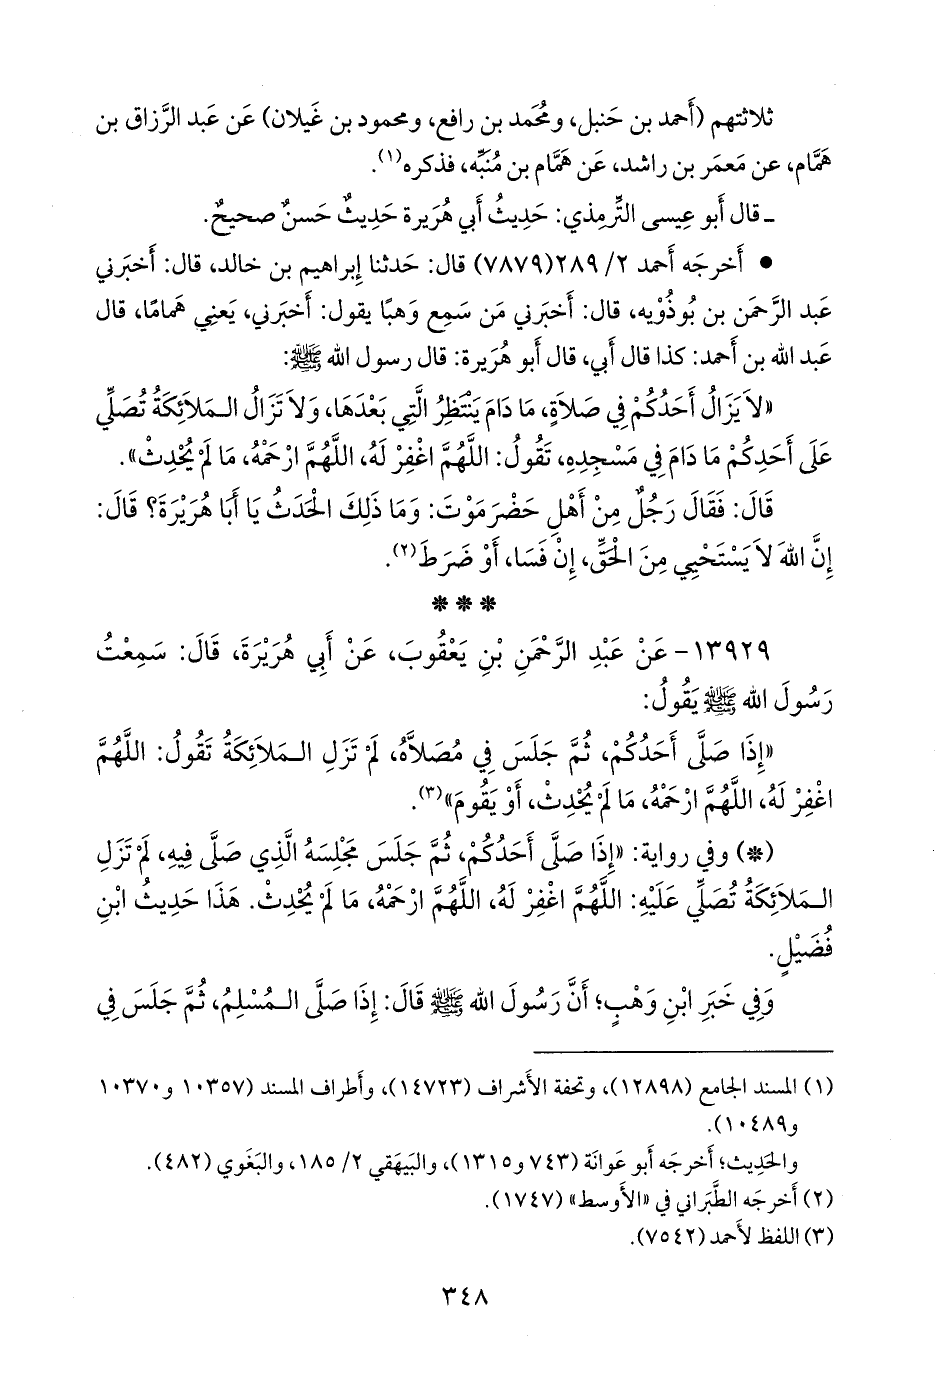 ثلاثتهم (أَحمد بن حَنبل، ومُحمد بن رافع، ومحمود بن غَيلان) عَن عَبد الرَّزاق بن
هَمَّام، عن مَعمَر بن راشد، عَن هَمَّام بن مُنَبِّه، فذكره(١).
ـ قال أَبو عِيسى التِّرمِذي: حَدِيثُ أَبي هُرَيرة حَدِيثٌ حَسنٌ صحيحٌ.
● أَخرجَه أَحمد ٢/ ٢٨٩(٧٨٧٩) قال: حَدثنا إِبراهيم بن خالد، قال: أَخبَرني
عَبد الرَّحمَن بن بُوذُوْيه، قال: أَخبَرني مَن سَمِع وَهبًا يقول: أَخبَرني، يَعنِي هَمامًا، قال
عَبد الله بن أَحمد: كذا قال أَبي، قال أَبو هُرَيرة: قال رسول الله ﷺ:
«لاَ يَزَالُ أَحَدُكُمْ فِي صَلاَةٍ، مَا دَامَ يَنْتَظِرُ الَّتِي بَعْدَهَا، وَلاَ تَزَالُ الـمَلاَئِكَةُ تُصَلِّي
عَلَى أَحَدِكُمْ مَا دَامَ فِي مَسْجِدِهِ، تَقُولُ: اللَّهُمَّ اغْفِرْ لَهُ، اللَّهُمَّ ارْحَمْهُ، مَا لَمْ يُحْدِثْ».
قَالَ: فَقَالَ رَجُلٌ مِنْ أَهْلِ حَضْرَمَوْتَ: وَمَا ذَلِكَ الْحَدَثُ يَا أَبَا هُرَيْرَةَ؟ قَالَ:
إِنَّ اللهَ لاَ يَسْتَحْيِي مِنَ الْحَقِّ، إِنْ فَسَا، أَوْ ضَرَطَ(٢).
* * *
١٣٩٢٩- عَنْ عَبْدِ الرَّحْمَنِ بْنِ يَعْقُوبَ، عَنْ أَبِي هُرَيْرَةَ، قَالَ: سَمِعْتُ
رَسُولَ الله ﷺ يَقُولُ:
«إِذَا صَلَّى أَحَدُكُمْ، ثُمَّ جَلَسَ فِي مُصَلاَّهُ، لَمْ تَزَلِ الـمَلاَئِكَةُ تَقُولُ: اللَّهُمَّ
اغْفِرْ لَهُ، اللَّهُمَّ ارْحَمْهُ، مَا لَمْ يُحْدِثْ، أَوْ يَقُومَ»(٣).
(*) وفي رواية: «إِذَا صَلَّى أَحَدُكُمْ، ثُمَّ جَلَسَ مَجْلِسَهُ الَّذِي صَلَّى فِيهِ، لَمْ تَزَلِ
الـمَلاَئِكَةُ تُصَلِّي عَلَيْهِ: اللَّهُمَّ اغْفِرْ لَهُ، اللَّهُمَّ ارْحَمْهُ، مَا لَمْ يُحْدِثْ. هَذَا حَدِيثُ ابْنِ
فُضَيْلٍ.
وَفِي خَبَرِ ابْنِ وَهْبٍ؛ أَنَّ رَسُولَ الله ﷺ قَالَ: إِذَا صَلَّى الـمُسْلِمُ، ثُمَّ جَلَسَ فِي
(١) المسند الجامع (١٢٨٩٨)، وتحفة الأَشراف (١٤٧٢٣)، وأَطراف المسند (١٠٣٥٧ و١٠٣٧٠
و١٠٤٨٩).
والحَدِيث؛ أَخرجَه أَبو عَوانَة (٧٤٣ و١٣١٥)، والبَيهَقي ٢/ ١٨٥، والبَغَوي (٤٨٢).
(٢) أَخرجَه الطَّبَراني في «الأَوسط» (١٧٤٧).
(٣) اللفظ لأَحمد (٧٥٤٢).
٣٤٨